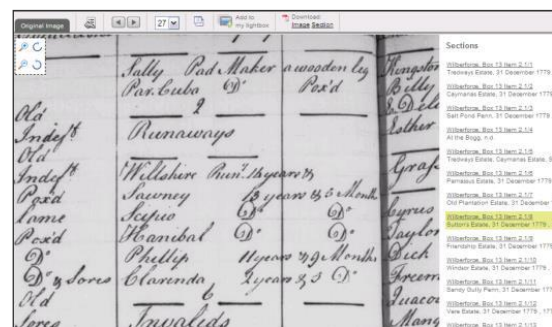 Original Image
27
Add to
my lightbox
Download
Image Section
Sally Pad Maker a wooden leg
Par. Cuba Do Pox'd
2
Runaways
Willshire Run.
Sawney
Scipio Do Do
Hanibal Do Do
Phillip 11 years & 9 Months
Clarenda 2 years & 3 Do
6
Invalids
Old
Indefft
Old
Indefft
Pox'd
lame
Pox'd
Do
Do & Sores
Old
Sores
Kingston
Billy
Esther
Grass
Cyrus
Taylor
Dick
Freem
Quaco
Sections
Wilberforce, Box 13 Item 2.1/1
Tredways Estate, 31 December 1779
Wilberforce, Box 13 Item 2.1/2
Caymanas Estate, 31 December 1779
Wilberforce, Box 13 Item 2.1/3
Salt Pond Penn, 31 December 1779
Wilberforce, Box 13 Item 2.1/4
At the Bogg, n.d.
Wilberforce, Box 13 Item 2.1/5
Tredways Estate, Caymanas Estate, S
Wilberforce, Box 13 Item 2.1/6
Parnasus Estate, 31 December 1779
Wilberforce, Box 13 Item 2.1/7
Old Plantation Estate, 31 December
Wilberforce, Box 13 Item 2.1/8
Sutton's Estate, 31 December 1779
Wilberforce, Box 13 Item 2.1/9
Friendship Estate, 31 December 1779
Wilberforce, Box 13 Item 2.1/10
Windsor Estate, 31 December 1779
Wilberforce, Box 13 Item 2.1/11
Sandy Gully Penn, 31 December 177
Wilberforce, Box 13 Item 2.1/12
Vere Estate, 31 December 1779, 177
Wilberforce, Box 13 Item 2.1/13